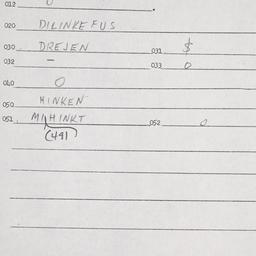 012
020 DILINKEFUS
030 DREJEN 031 $
032 – 033 0
040 0
050 HINKEN
051 MIHINKT 052 0
(491)